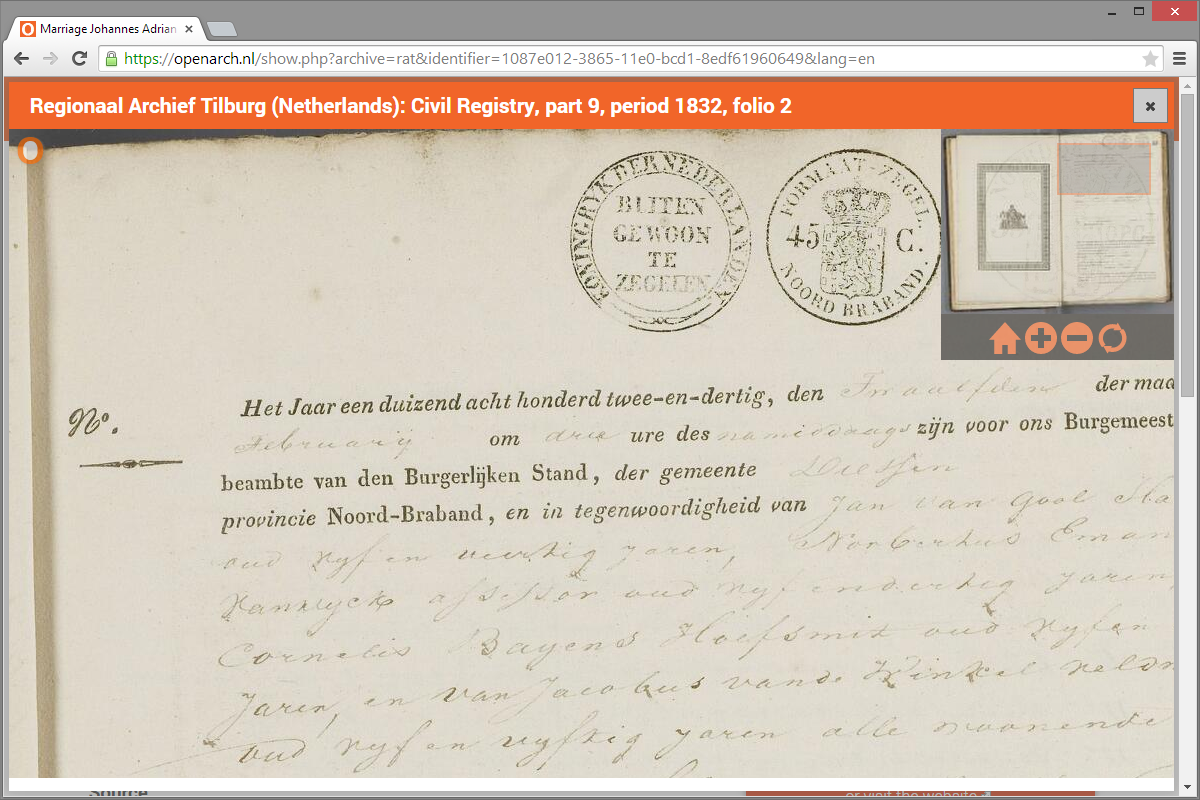 Marriage Johannes Adrian
https://openarch.nl/show.php?archive=rat&identifier=1087e012-3865-11e0-bcd1-8edf61960649&lang=en
Regionaal Archief Tilburg (Netherlands): Civil Registry, part 9, period 1832, folio 2
KONINGRYK DER NEDERLANDEN
BUITEN
GEWOON
TE
ZEGELEN
FORMAAT-ZEGEL
45 C.
NOORD BRABAND.
No.
Het Jaar een duizend acht honderd twee-en-dertig, den Twaalfden der maa
Februarij om drie ure des namiddaags zijn voor ons Burgemeest
beambte van den Burgerlijken Stand, der gemeente Diessen
provincie Noord-Braband, en in tegenwoordigheid van Jan van Gool Ha
oud vyf en veertig jaren, Norbertus Eman
vanwyck assessor oud vyf en dertig jaren
Cornelis Bayens Hoefsmit oud vyf en
Jaren, en van Jacobus vande Winkel veld
oud vyf en vyftig jaren alle woonende
Source
or visit the website